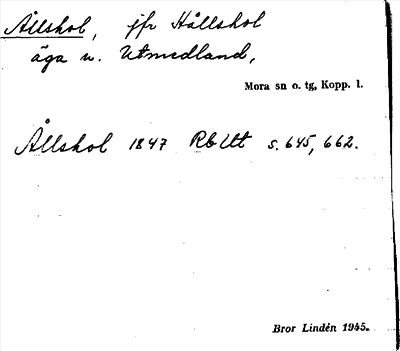 Ållskol, jfr Hållskol
äga u. Utmedland,
Mora sn o. tg, Kopp. l.
Ållskol 1847 Rb Utt s. 645, 662.
Bror Lindén 1945.